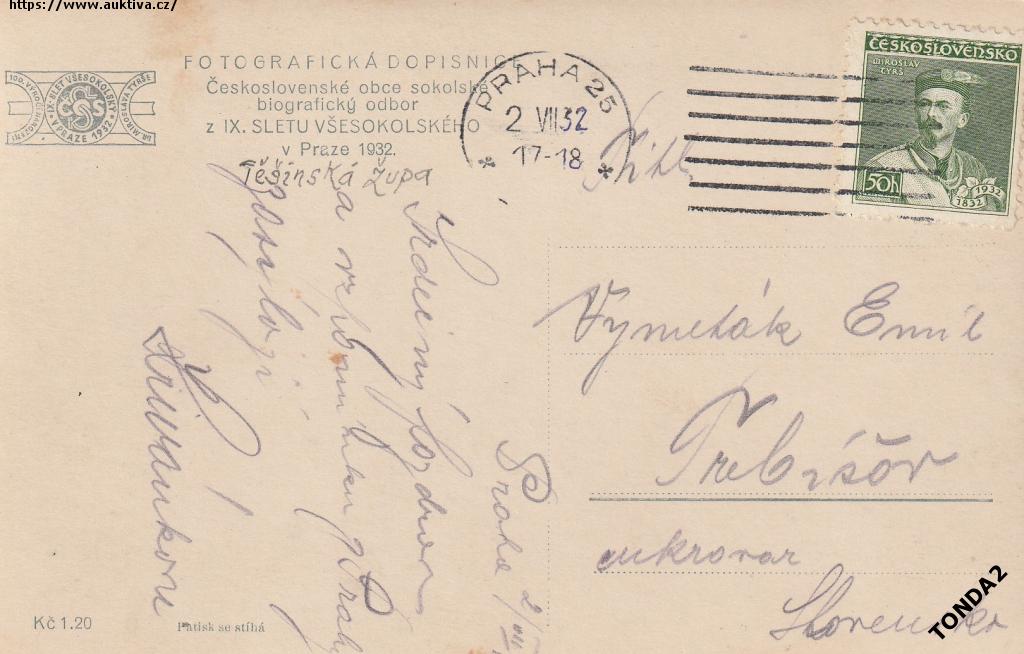 https://www.auktiva.cz/
FOTOGRAFICKÁ DOPISNICE
Československé obce sokolské
biografický odbor
z IX. SLETU VŠESOKOLSKÉHO
v Praze 1932.
Těšínská župa
IX. SLET VŠESOKOLSKÝ
V PRAZE 1932
PRAHA 25
2 VII 32
17-18
ČESKOSLOVENSKO
MIROSLAV
TYRŠ
50h
1932
1832
Praha 2/VII
Srdečný pozdrav
a vzpomínku z Prahy
Vymeták Emil
Třebišov
cukrovar
Slovensko
Kč 1.20
Patisk se stíhá
TONDA2